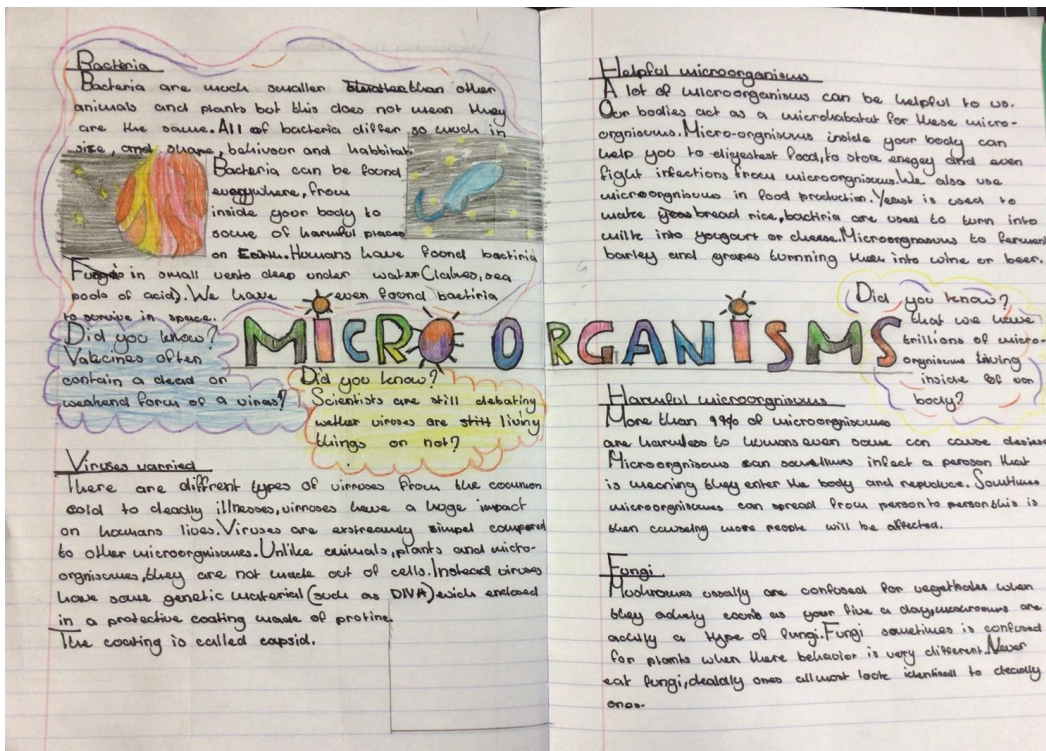 Bacteria
Bacteria are much smaller than other
animals and plants but this does not mean they
are the same. All of bacteria differ so much in
size, and shape, bahivour and habbitat.
Bacteria can be found
everywhere, from
inside your body to
some of harmful places
on Earth. Humans have foond bactiria
Fungi in small vents deep under water (labres, sea
pools of acid). We have even foond bactiria
to survive in space.
Did you know?
Valecines often
contain a dead or
weakend form of a virus?
MICRO ORGANISMS
Did you know?
Scientists are still debating
wether viruses are still living
things or not?
Viruses varried
There are diffrent types of virruses from the common
cold to deadly illnesses, virroses have a huge impact
on homans lives. Viruses are exstreamly simpel compared
to other microorgnisomes. Unlike animals, plants and micro-
orgniscmes, they are not made out of cells. Instead viruses
have some genetic material (such as DIVA) wich enclosed
in a protective coating made of protine.
The coating is called capsid.
Helpful microorganisms
A lot of microorganisms can be helpful to us.
Our bodies act as a microhabatat for these micro-
orgnisoms. Micro-orgnisoms inside your body can
help you to eligestest food, to store enegey and even
fight infections from microorgnisoms. We also use
microorgnisoms in food production. Yeast is used to
make bread rice, bactiria are used to turn into
milk into yougourt or cheese. Microorgnasoms to ferment
barley and grapes turnning them into wine or beer.
Did you know?
that we have
trillions of micro-
orgnisoms living
inside of our
body?
Harmful microorganisoms
More than 99% of microorgnisoms
are harmless to homans even some can cause desiese
Microorgnisoms can sometimes infect a peroson that
is meaning they enter the body and reproduce. Somtimes
microorgnisomes can spread from person to person this is
then caussing more people will be affected.
Fungi
Mushromes usually are confused for vegetables when
they actuly comb as your five a day, moshroums are
acully a type of fungi. Fungi sometimes is confused
for plants when there behavior is very different. Never
eat fungi, dealdly ones allmost look identicall to decally
ones.